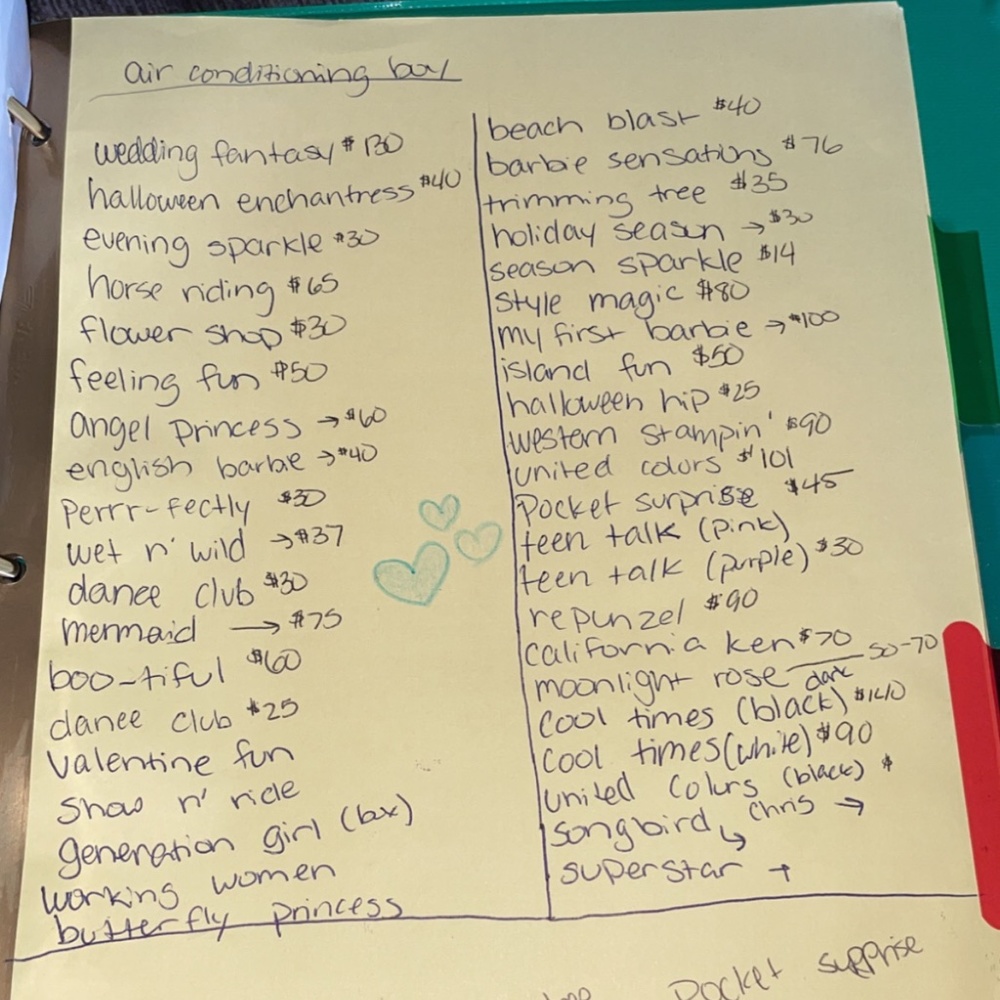 air conditioning box
wedding fantasy $130
halloween enchantress $40
evening sparkle $30
horse riding $65
flower shop $30
feeling fun $50
angel princess → $60
english barbie → $40
perrr-fectly $30
wet n' wild → $37
dance club $30
mermaid → $75
boo-tiful $60
dance club $25
valentine fun
show n' ride
generation girl (box)
working women
butterfly princess
beach blast $40
barbie sensations $76
trimming tree $35
holiday season → $30
season sparkle $14
style magic $80
my first barbie → $100
island fun $50
halloween hip $25
western stampin' $90
united colors $101
pocket surprise $45
teen talk (pink)
teen talk (purple) $30
repunzel $90
california ken $70
moonlight rose 50-70
dark
cool times (black) $140
cool times (white) $90
united colors (black) $
songbird ↳ chris →
superstar +
pocket surprise